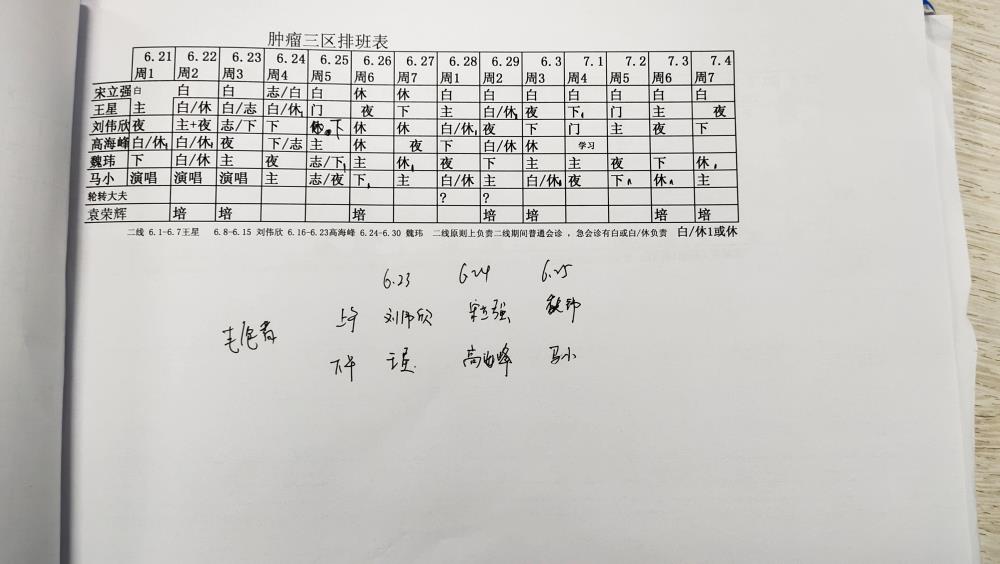 肿瘤三区排班表
6.21 6.22 6.23 6.24 6.25 6.26 6.27 6.28 6.29 6.3 7.1 7.2 7.3 7.4
周1 周2 周3 周4 周5 周6 周7 周1 周2 周3 周4 周5 周6 周7
宋立强 白 白 白 志/白 白 休 休 白 白 白 白 白 白 白
王星 主 白/休 白/志 白/休1 门 夜 下 主 白/休1 夜 下1 门 主 夜
刘伟欣 夜 主+夜 志/下 下 下 休 休 白/休1 夜 下 门 主 夜 下
高海峰 白/休1 白/休1 夜 下/志 主 休 夜 下 白/休 休 学习
魏玮 下 白/休 主 夜 志/下1 主 休1 夜 下 主 主 夜 下 休1
马小 演唱 演唱 演唱 主 志/夜 下1 主 白/休 主 白/休1 夜 下1 休1 主
轮转大夫 ? ?
袁荣辉 培 培 培 培 培 培 培
二线 6.1-6.7王星 6.8-6.15 刘伟欣 6.16-6.23高海峰 6.24-6.30 魏玮 二线原则上负责二线期间普通会诊，急会诊有白或白/休负责 白/休1或休
6.23 6.24 6.25
上午 刘伟欣 宋立强 魏玮
下午 王星 高海峰 马小